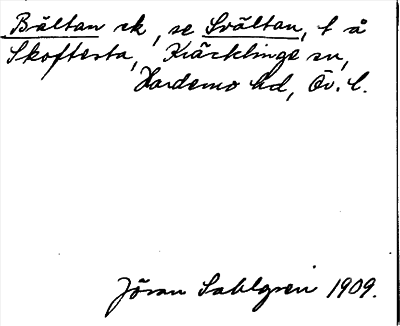 Bältan sk, se Svältan, t å
Skoftesta, Kräcklinge sn,
Hardemo hd, Öv. l.
Jöran Sahlgren 1909.